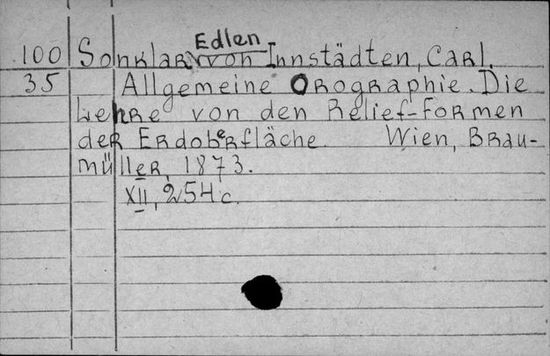 Edlen
100 Sonklar von Innstädten, Carl.
35 Allgemeine Orographie. Die
Lehre von den Relief-Formen
der Erdoberfläche Wien, Brau-
müller, 1873.
XII, 254 c.